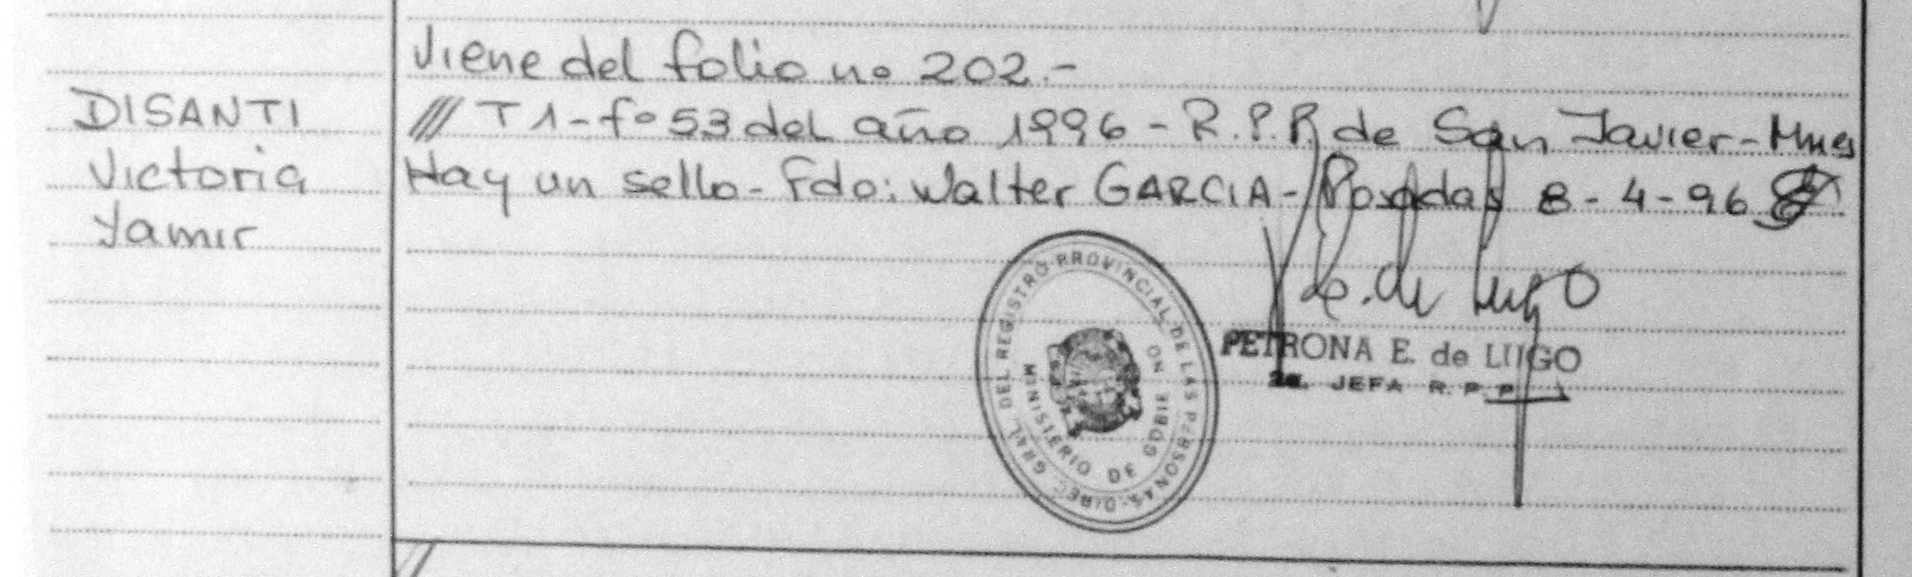 viene del folio no 202.-
DISANTI
Victoria
Yamir
/// T1-fo 53 del año 1996 - R.P.P. de San Javier - Mnes
Hay un sello - Fdo: Walter GARCIA - Posadas 8-4-96
de Lugo
PETRONA E. de LUGO
2a. JEFA R. P. P.
DIREC. GRAL. DEL REGISTRO PROVINCIAL DE LAS PERSONAS
MINISTERIO DE GOBIERNO